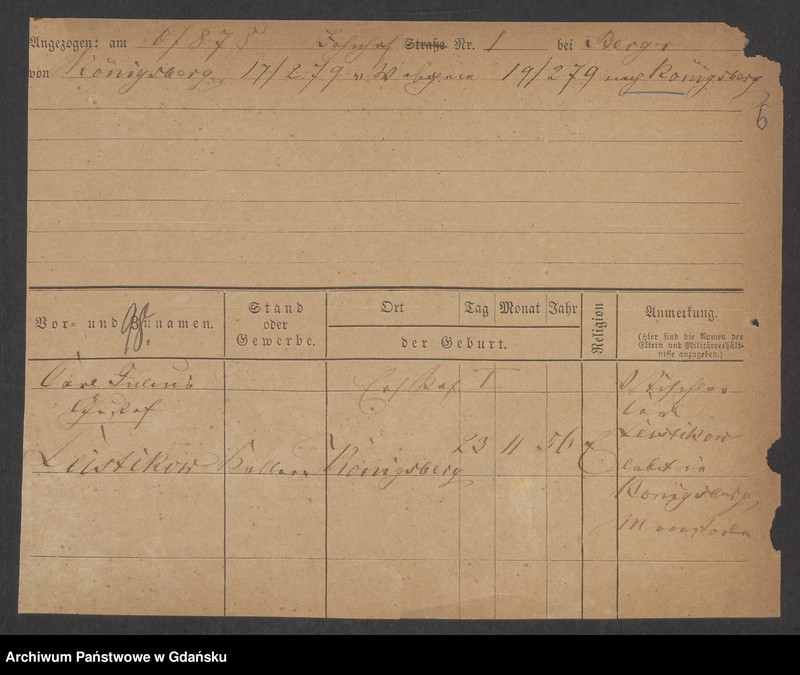 Angezogen: am 6/878 Bahnhof Straße Nr. 1 bei Berger
von Königsberg 17/2 79 19/279 nach Königsberg
6
Vor- und Zunamen. Stand oder Gewerbe. Ort Tag Monat Jahr der Geburt. Religion Anmerkung.
(Hier sind die Namen der Eltern und Militärverhältnisse anzugeben.)
Carl Julius Tischler
Gustav Carl
Leistikow Königsberg 23 11 56 Leistikow
lebt in
Königsberg
Archiwum Państwowe w Gdańsku